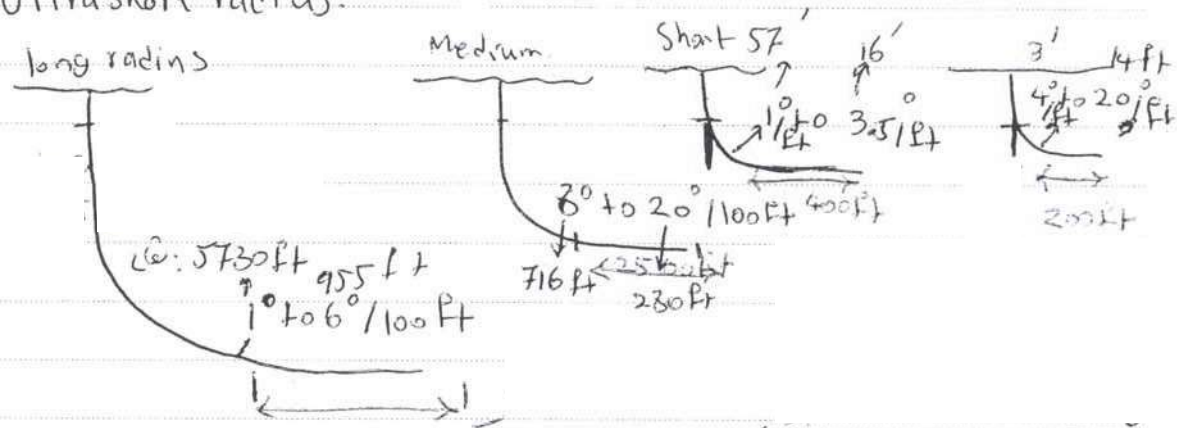 Ultrashort radius.
long radius
Medium
Short 57'
16'
3'
14 ft
1°/ft to 3.5°/ft
4°/ft to 20°/ft
400ft
200ft
8° to 20°/100ft
716 ft
2500ft
280ft
5730ft
955 ft
1° to 6°/100 ft